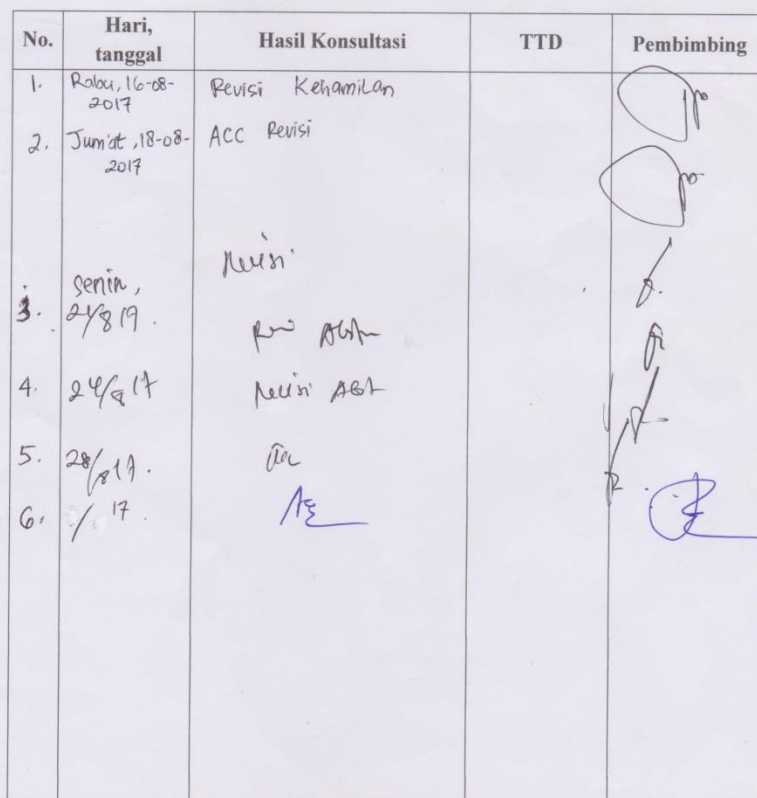 No. Hari, tanggal Hasil Konsultasi TTD Pembimbing
1. Rabu, 16-08-2017 Revisi Kehamilan
2. Jum'at, 18-08-2017 ACC Revisi
Revisi
3. Senin, 21/8 19.
4. 24/8 17 Revisi
5. 28/8 17.
6. 17.